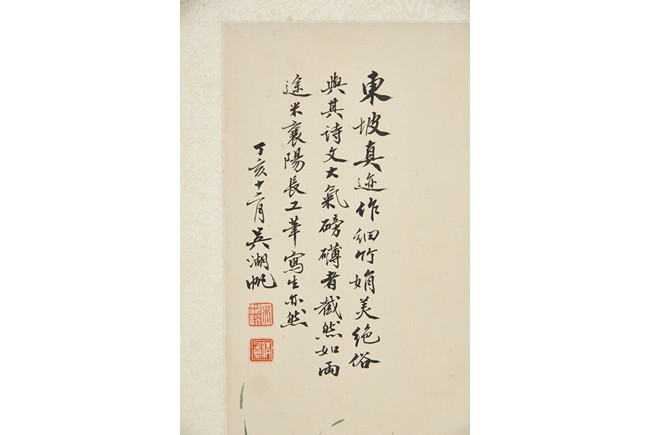 東坡真迹作細竹娟美絶俗
與其詩文大氣磅礴者截然如兩
途米襄陽長工筆寫生亦然
丁亥十二月吳湖帆